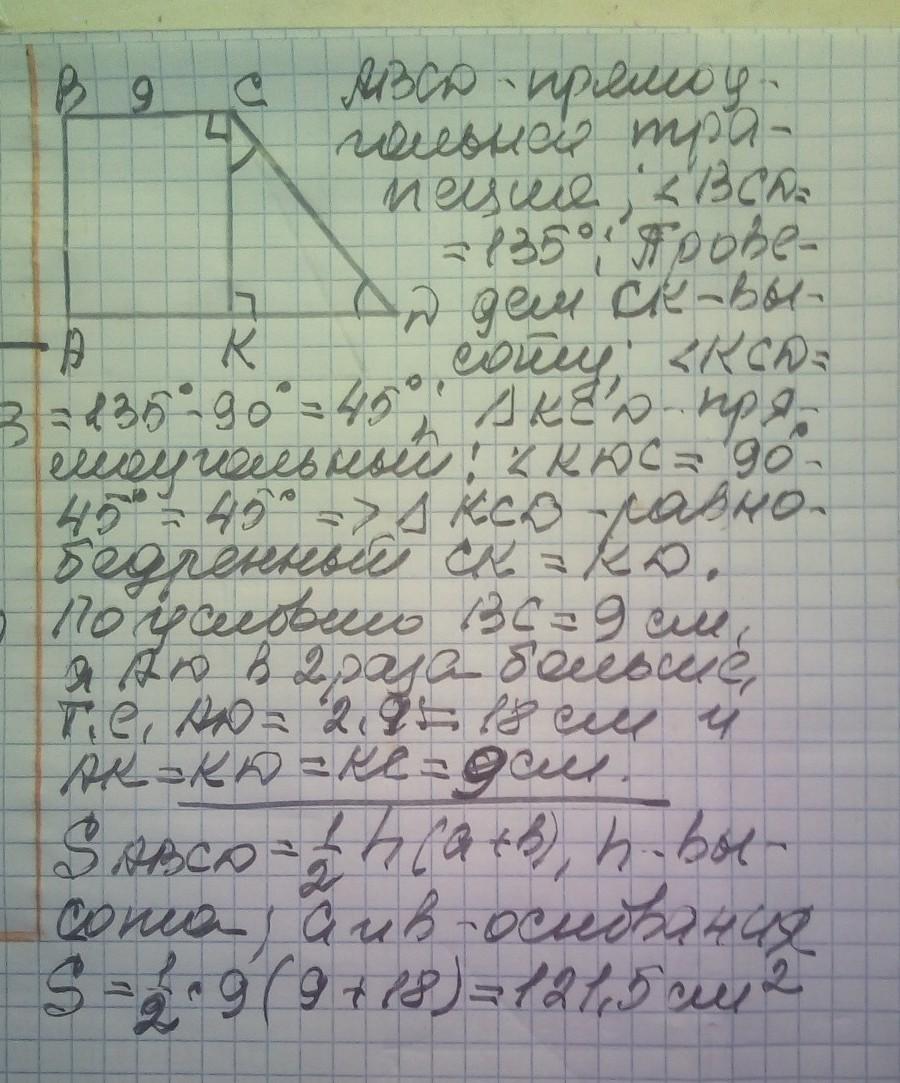 B 9 C
A K D
ABCD - прямоу-
гольная тра-
пеция; <BCD=
=135°; Прове-
дем CK - вы-
соту; <KCD=
=135°-90°=45°; Δ KCD - пря-
моугольный; <KDC = 90°-
45° = 45° => Δ KCD - равно-
бедренный CK = KD.
По условию BC = 9 см,
а AD в 2 раза больше,
т.е. AD = 2.9 = 18 см и
AK = KD = KC = 9 см.
S ABCD = 1/2 h (a + b), h - вы-
сота; a и b - основания
S = 1/2 · 9 (9 + 18) = 121,5 см²